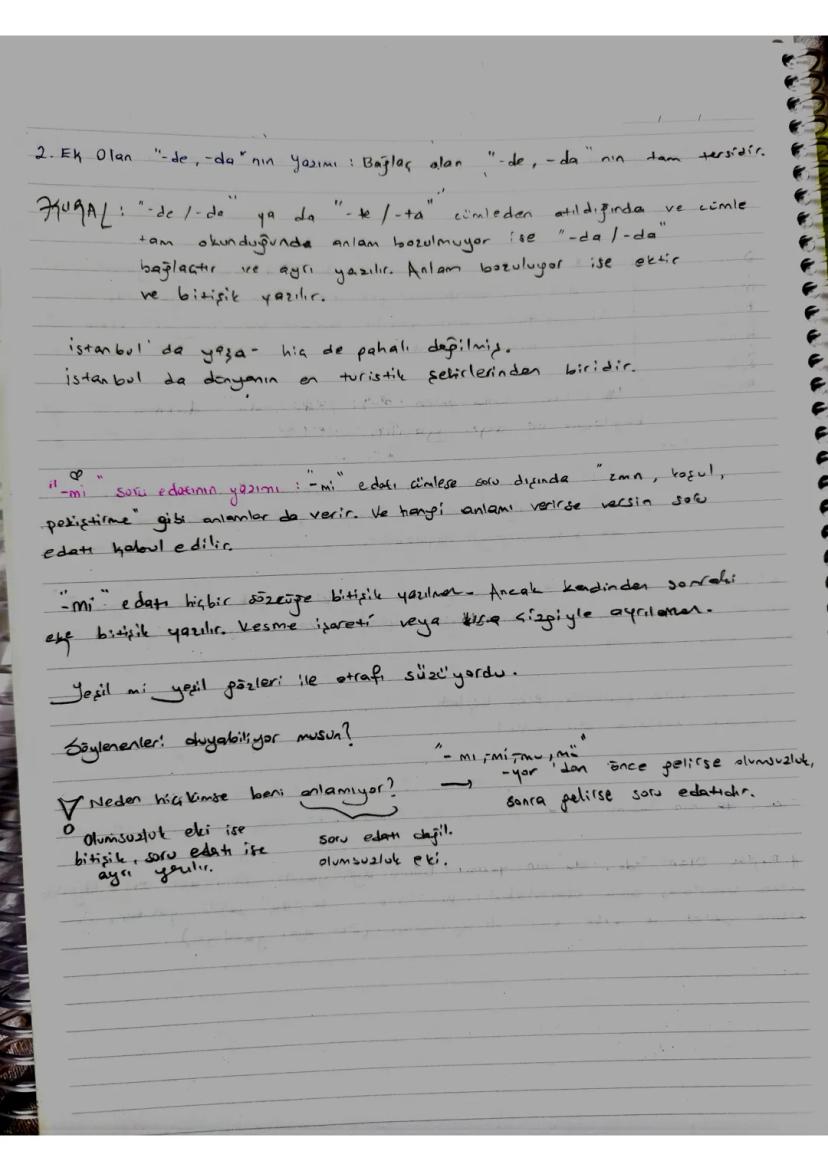 2. Ek Olan "-de, -da"nın Yazımı : Bağlaç olan "-de, -da"nın tam tersidir.
KURAL : "-de /-da" ya da "-te /-ta" cümleden atıldığında ve cümle
tam okunduğunda anlam bozulmuyor ise "-da /-da"
bağlaçtır ve ayrı yazılır. Anlam bozuluyor ise ektir
ve bitişik yazılır.
istanbul'da yaşa- hiç de pahalı değilmiş.
istanbul da dünyanın en turistik şehirlerinden biridir.
"-mi" soru edatının yazımı : "-mi" edatı cümlese soru dışında "zmn, koşul,
pekiştirme" gibi anlamlar da verir. Ve hangi anlamı verirse versin soru
edatı kabul edilir.
"-mi" edatı hiçbir sözcüğe bitişik yazılmaz. Ancak kendinden sonraki
eke bitişik yazılır. Kesme işareti veya kısa çizgiyle ayrılamaz.
Yeşil mi yeşil gözleri ile etrafı süzüyordu.
Söylenenleri duyabiliyor musun?
"-mı,-mi,-mu,mü"
Neden hiçkimse beni anlamıyor? → -yor 'dan önce gelirse olumsuzluk,
sonra gelirse soru edatıdır.
Olumsuzluk eki ise soru edatı değil.
bitişik, soru edatı ise olumsuzluk eki.
ayrı yazılır.